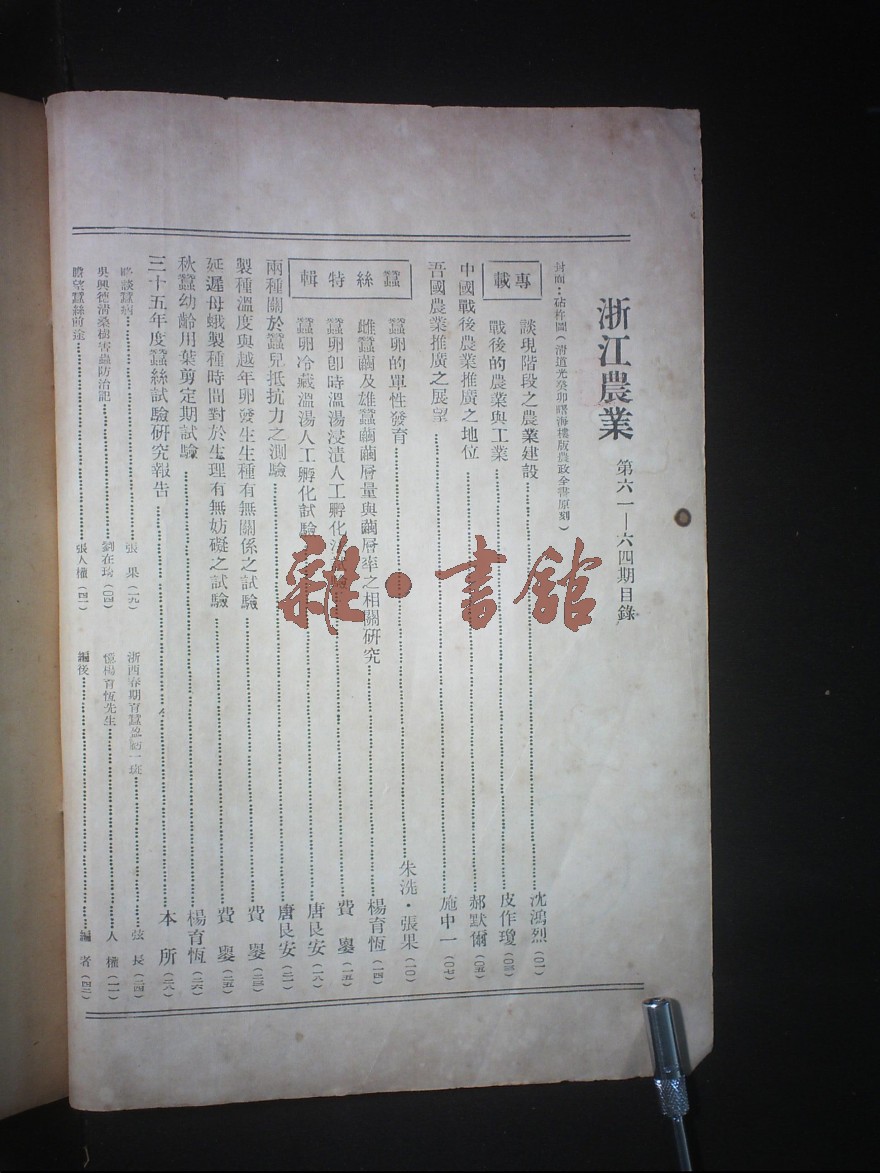 浙江農業 第六一—六四期目錄
封面：砧杵圖（清道光癸卯曙海樓版農政全書原刻）
專載
談現階段之農業建設 沈鴻烈（〇一）
戰後的農業與工業 皮作瓊（〇三）
中國戰後農業推廣之地位 郝默爾（〇五）
吾國農業推廣之展望 施中一（〇七）
蠶絲特輯
蠶卵的單性發育 朱洗·張果（一〇）
雌蠶繭及雄蠶繭繭層量與繭層率之相關研究 楊育恆（一四）
蠶卵卽時溫湯浸漬人工孵化 費鋆（一五）
蠶卵冷藏溫湯人工孵化試驗 唐艮安（一八）
兩種關於蠶兒抵抗力之測驗 唐艮安（二一）
製種溫度與越年卵發生生種有無關係之試驗 費鋆（二三）
延遲母蛾製種時間對於生理有無妨礙之試驗 費鋆（二五）
秋蠶幼齡用葉剪定期試驗 楊育恆（二六）
三十五年度蠶絲試驗研究報告 本所（二八）
略談蠶病 張果（一九）
浙西春期育蠶盈虧一斑 弦長（二四）
吳興德清桑樹害蟲防治記 劉在琦（四〇）
憶楊育恆先生 人權（一一）
瞻望蠶絲前途 張人權（四一）
編後 編者（四二）
雜·書館